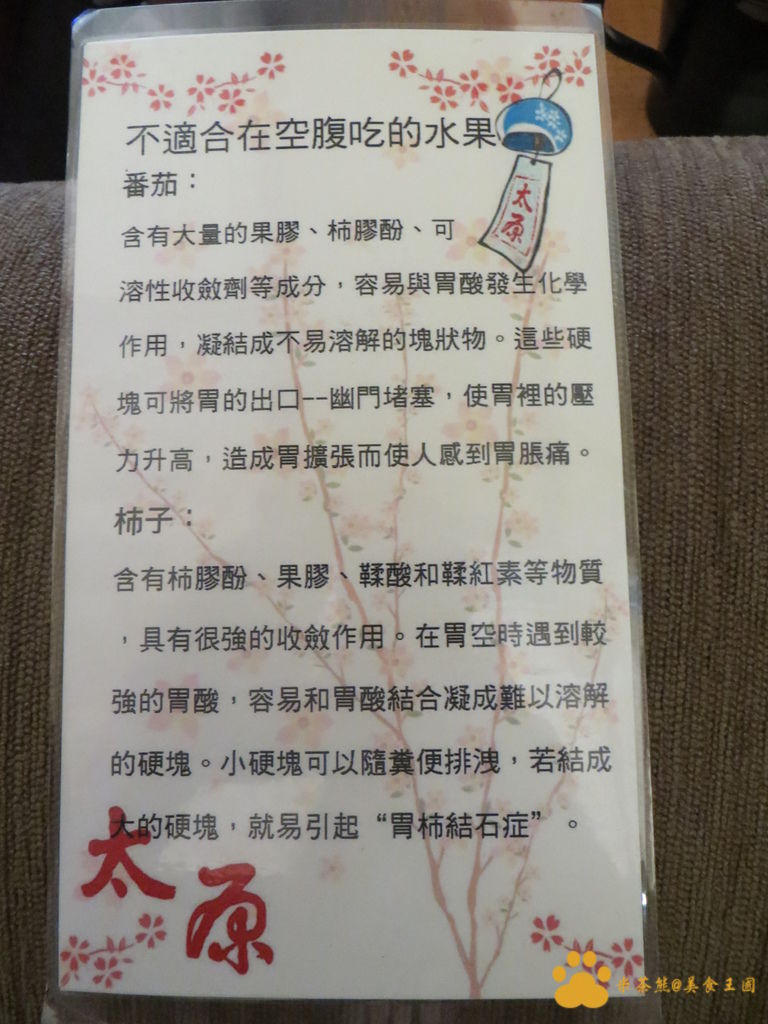 不適合在空腹吃的水果
番茄：
含有大量的果膠、柿膠酚、可
溶性收斂劑等成分，容易與胃酸發生化學
作用，凝結成不易溶解的塊狀物。這些硬
塊可將胃的出口--幽門堵塞，使胃裡的壓
力升高，造成胃擴張而使人感到胃脹痛。
柿子：
含有柿膠酚、果膠、鞣酸和鞣紅素等物質
，具有很強的收斂作用。在胃空時遇到較
強的胃酸，容易和胃酸結合凝成難以溶解
的硬塊。小硬塊可以隨糞便排洩，若結成
大的硬塊，就易引起“胃柿結石症”。
太原
太原
半茶熊@美食王國